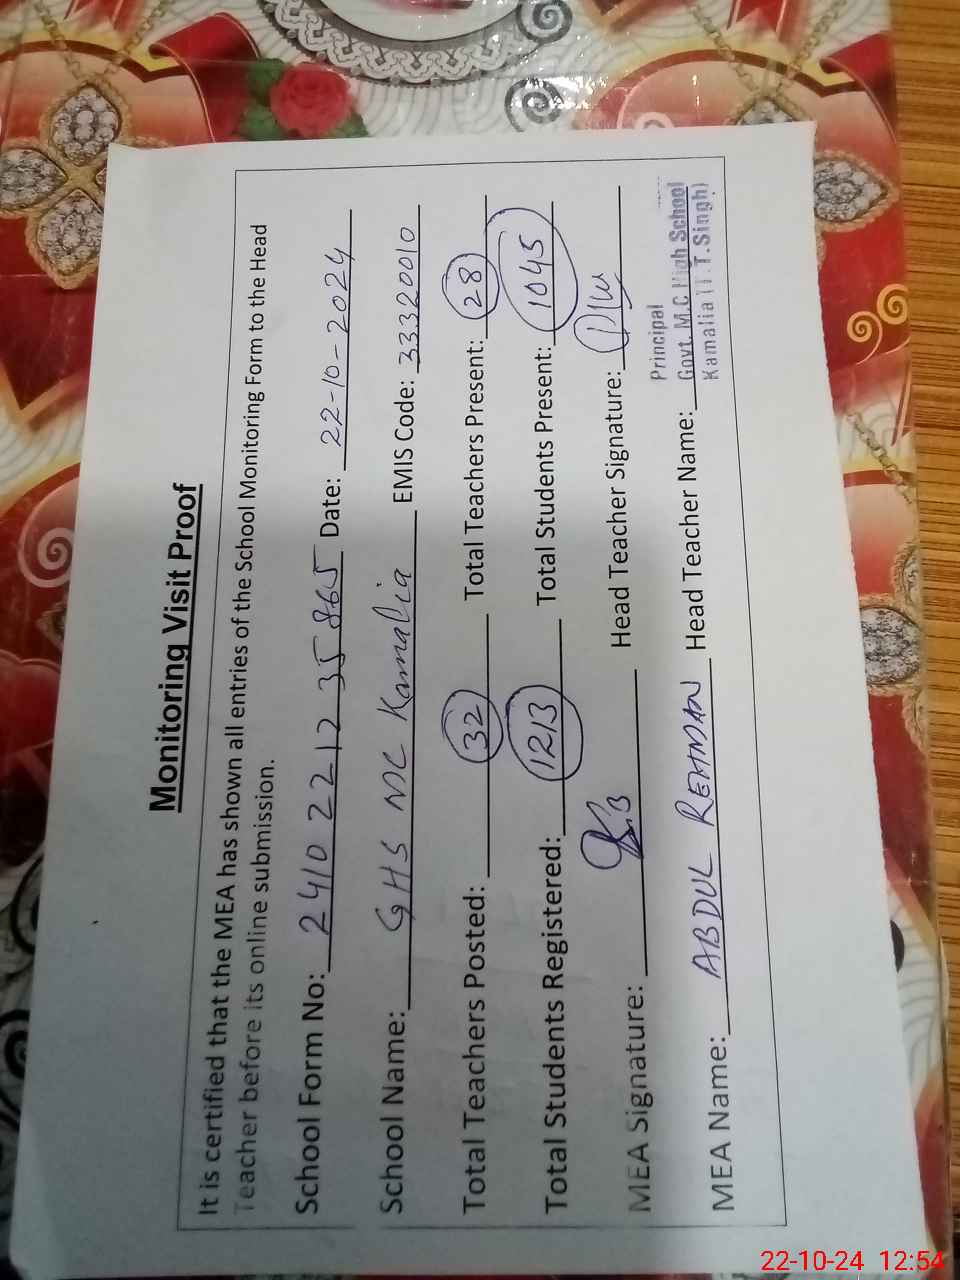 Monitoring Visit Proof
It is certified that the MEA has shown all entries of the School Monitoring Form to the Head
Teacher before its online submission.
School Form No: 2410221235865 Date: 22-10-2024
School Name: GHS MC Kamalia EMIS Code: 33320010
Total Teachers Posted: 32 Total Teachers Present: 28
Total Students Registered: 1213 Total Students Present: 1045
MEA Signature: Head Teacher Signature:
MEA Name: ABDUL REHMAN Head Teacher Name:
Principal
Govt. M.C High School
Kamalia (T.T.Singh)
22-10-24 12:54